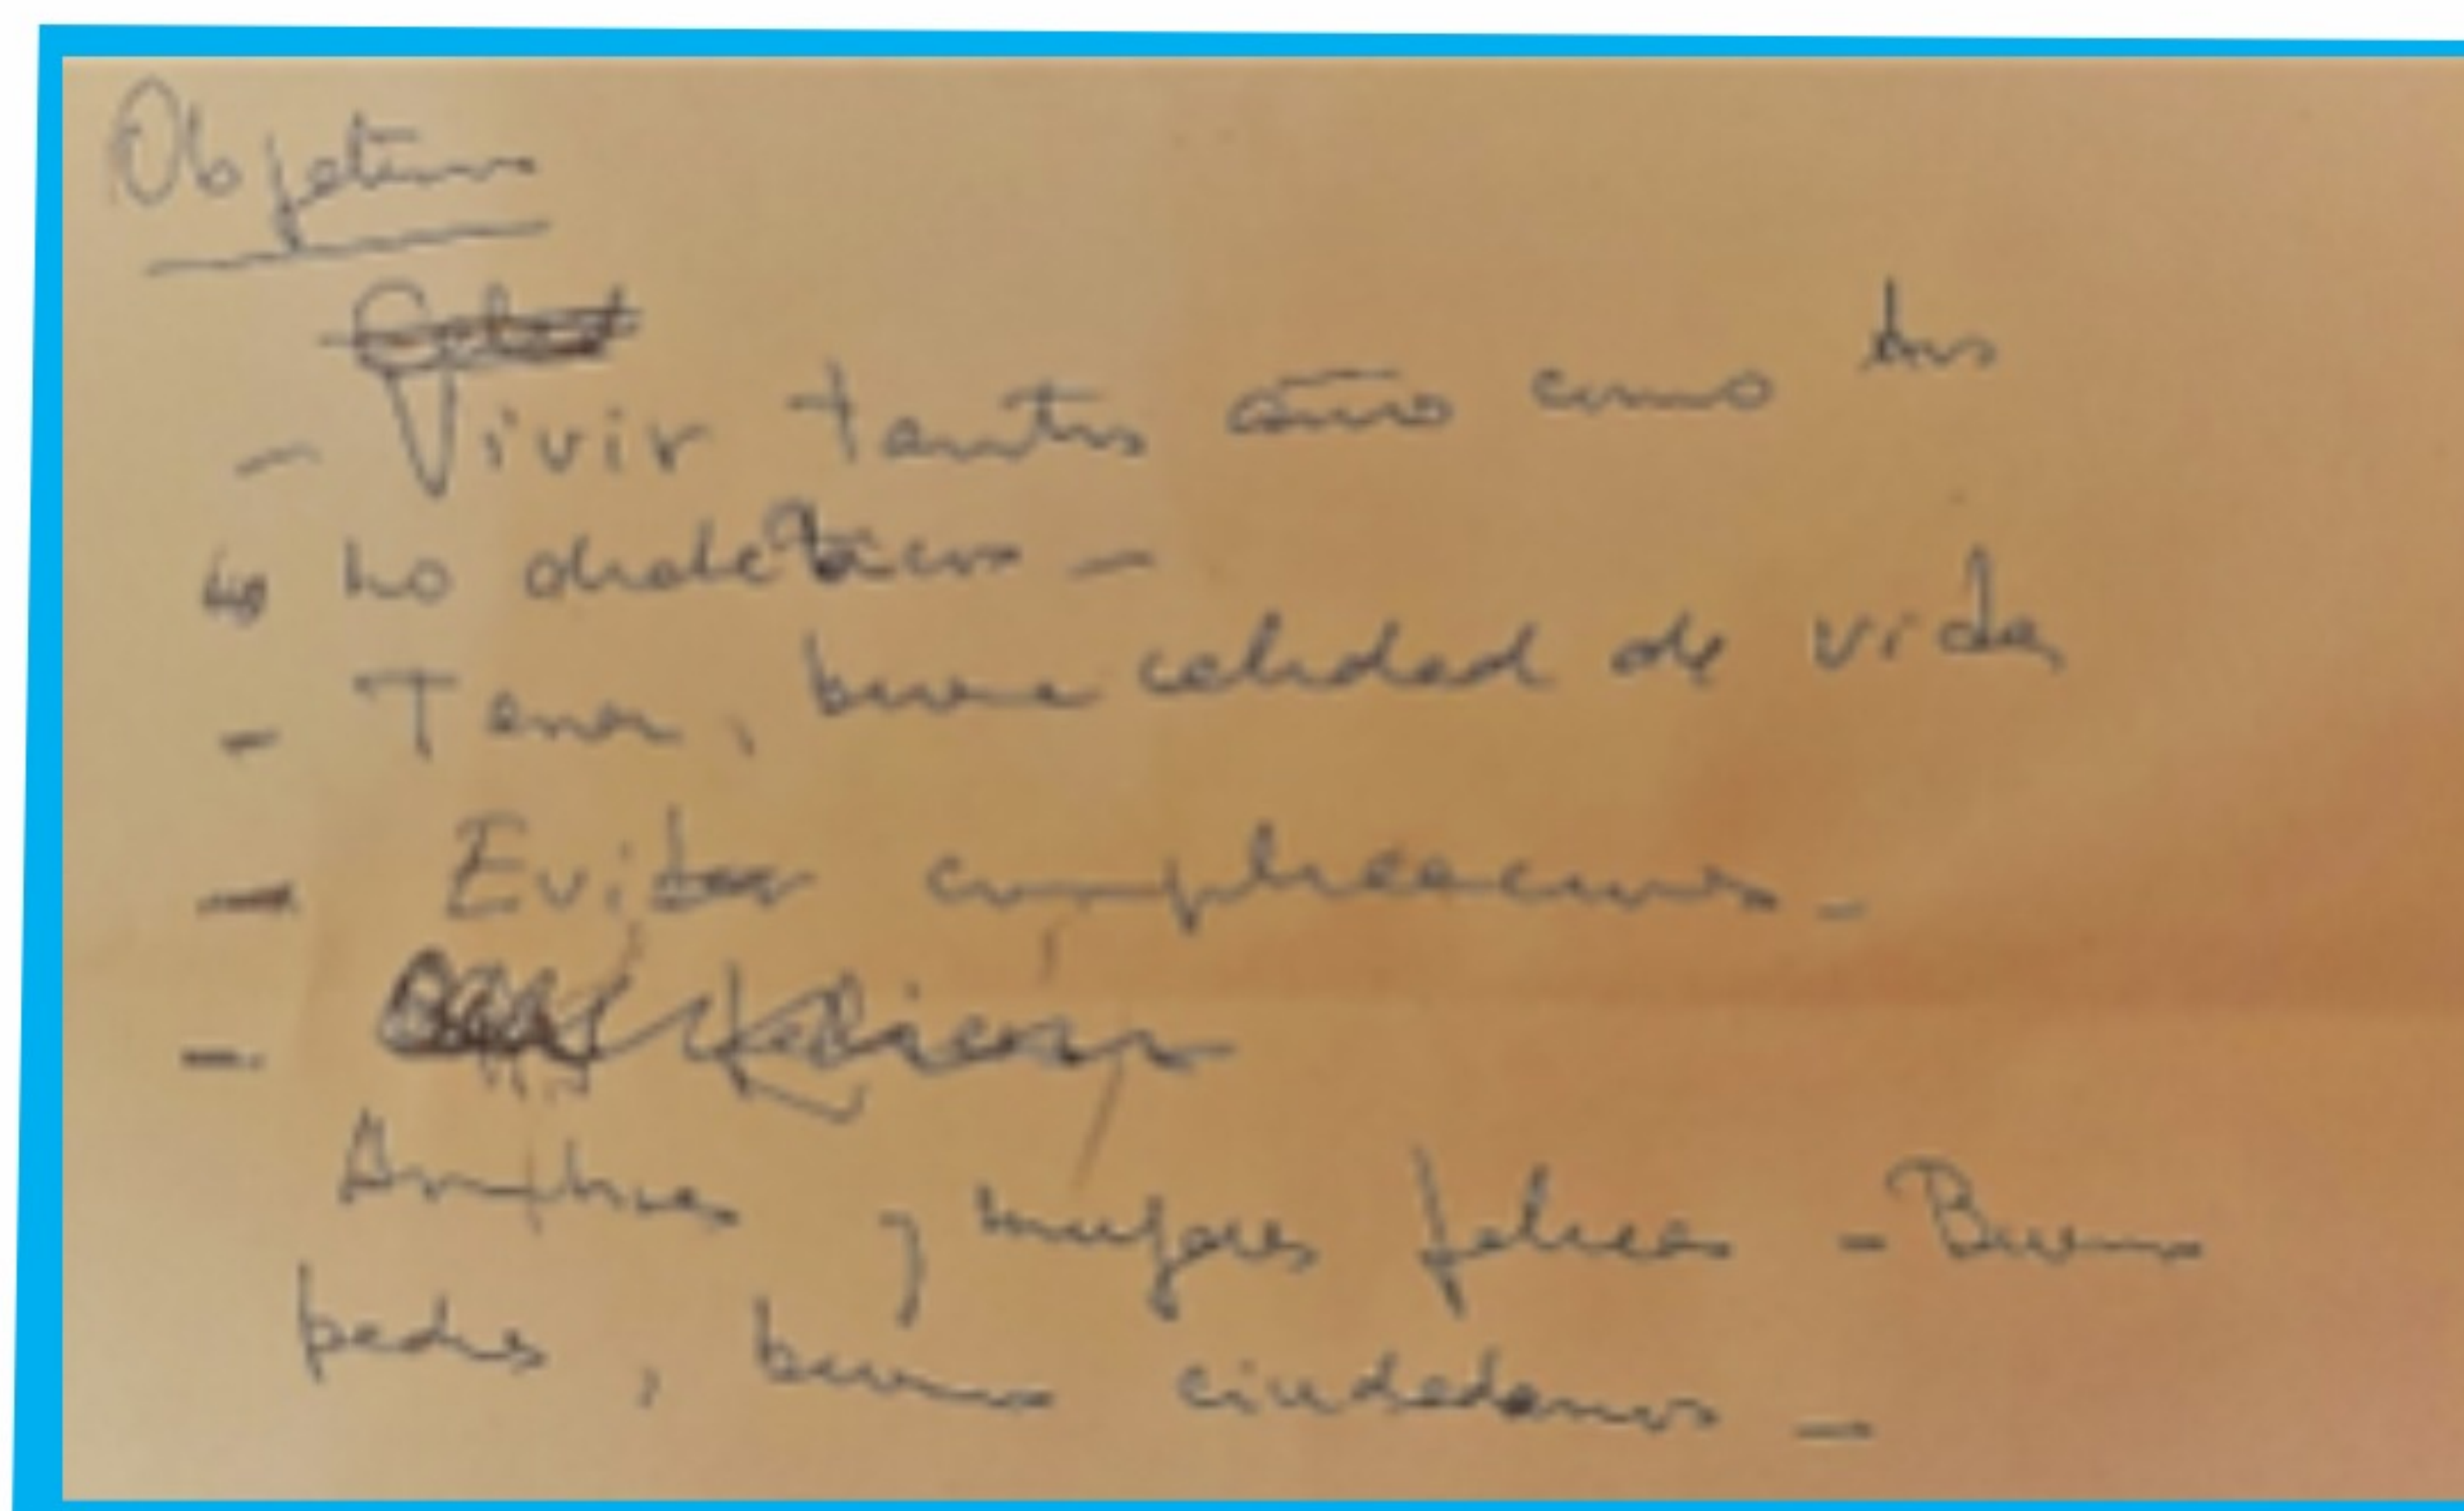 Objetivos
- Vivir tantos año como los
no diabeticos -
- Tener, buena calidad de vida
- Evitar complicaciones -
-
Hombres y mujeres felices - Buenos
padres, buenos ciudadanos -